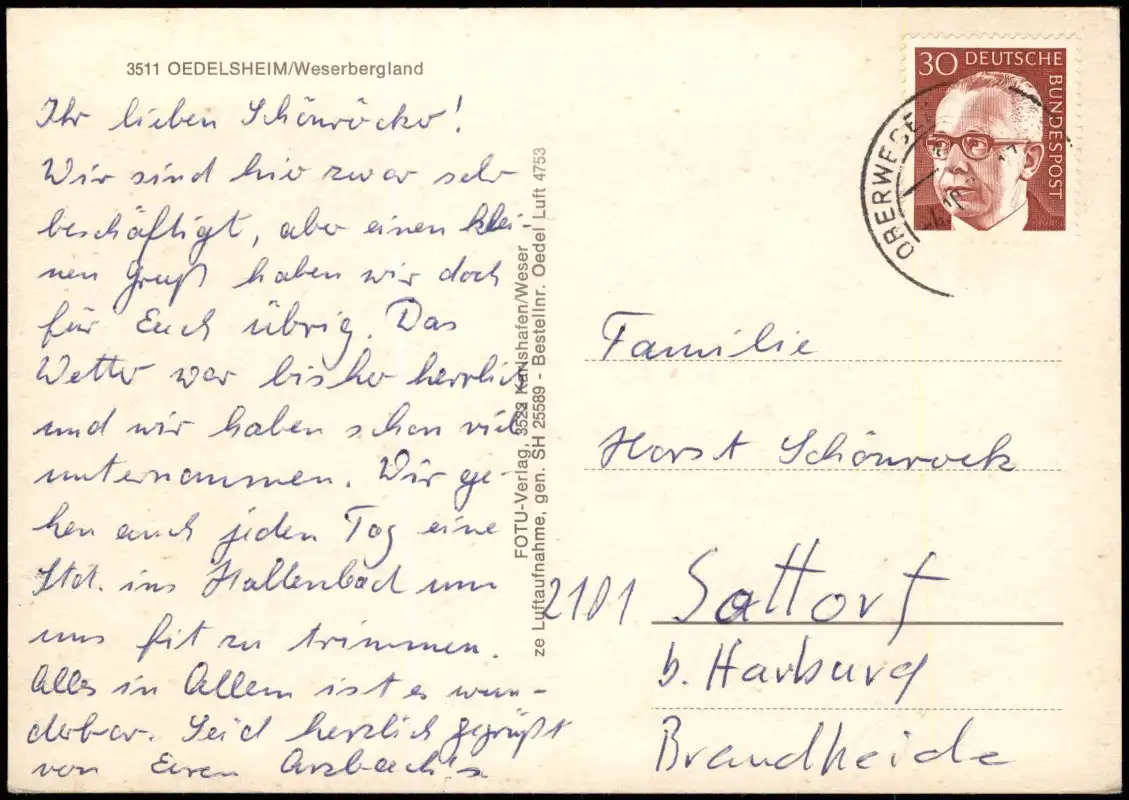 3511 OEDELSHEIM/Weserbergland
Ihr lieben Schönröcke!
Wir sind hier zwar sehr
beschäftigt, aber einen klei-
nen Gruß haben wir doch
für Euch übrig. Das
Wetter war bisher herrlich
und wir haben schon viel
unternommen. Wir ge-
hen auch jeden Tag eine
Std. ins Hallenbad um
uns fit zu trimmen.
Alles in Allem ist es wun-
derbar. Seid herzlich gegrüßt
von Euren Arzbach's
FOTU-Verlag, 3522 Karlshafen/Weser
ze Luftaufnahme, gen. SH 25589 - Bestellnr. Oedel Luft 4753
30 DEUTSCHE
BUNDESPOST
OBERWESER
Familie
Horst Schönrock
2101 Sottorf
b. Harburg
Brandheide